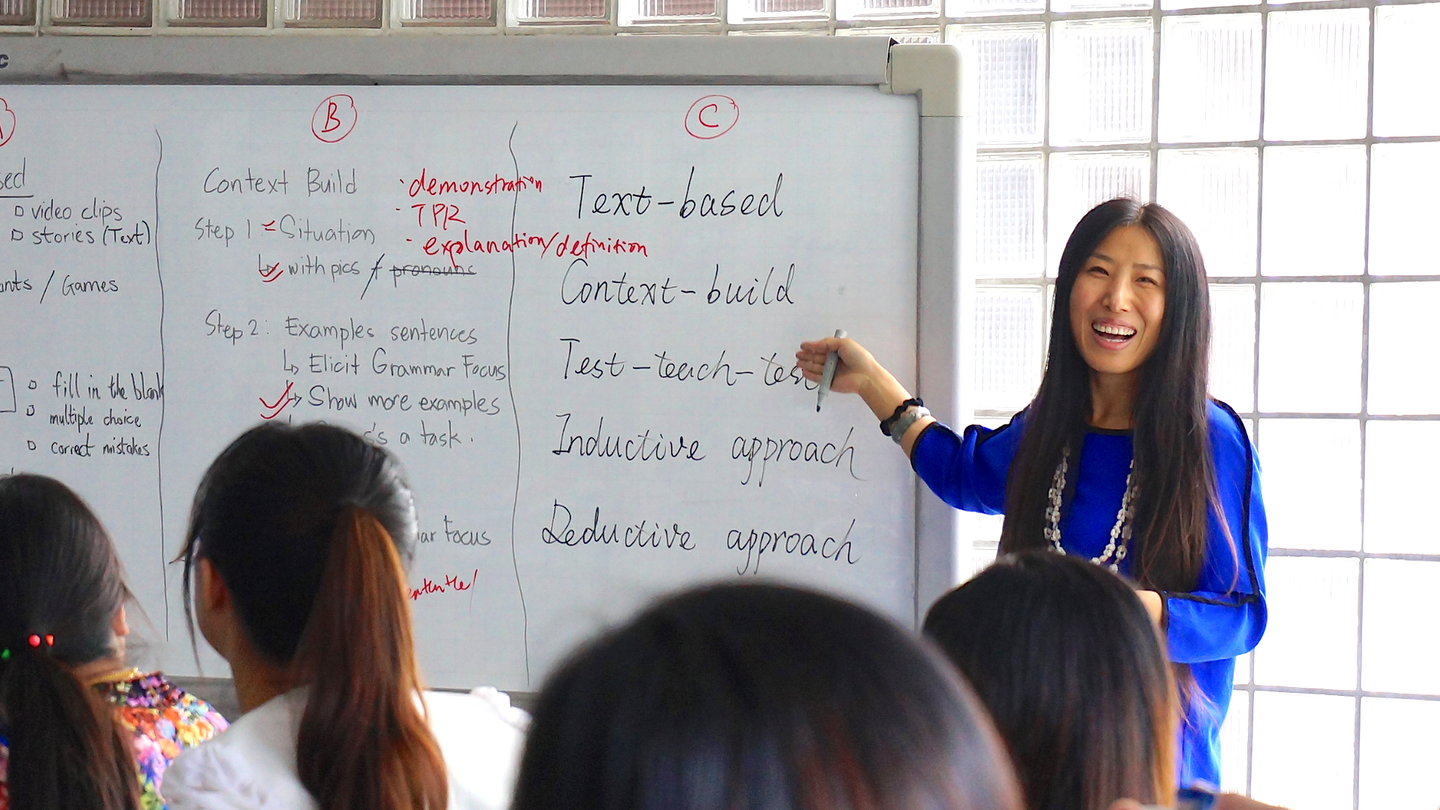 video clips
stories (Text)
/ Games
fill in the blank
multiple choice
correct mistakes
B
Context Build
· demonstration
· TPR
· explanation/definition
Step 1 Situation
with pics / pronouns
Step 2: Examples sentences
Elicit Grammar Focus
Show more examples
's a task.
Focus
C
Text-based
Context-build
Test-teach-test
Inductive approach
Deductive approach